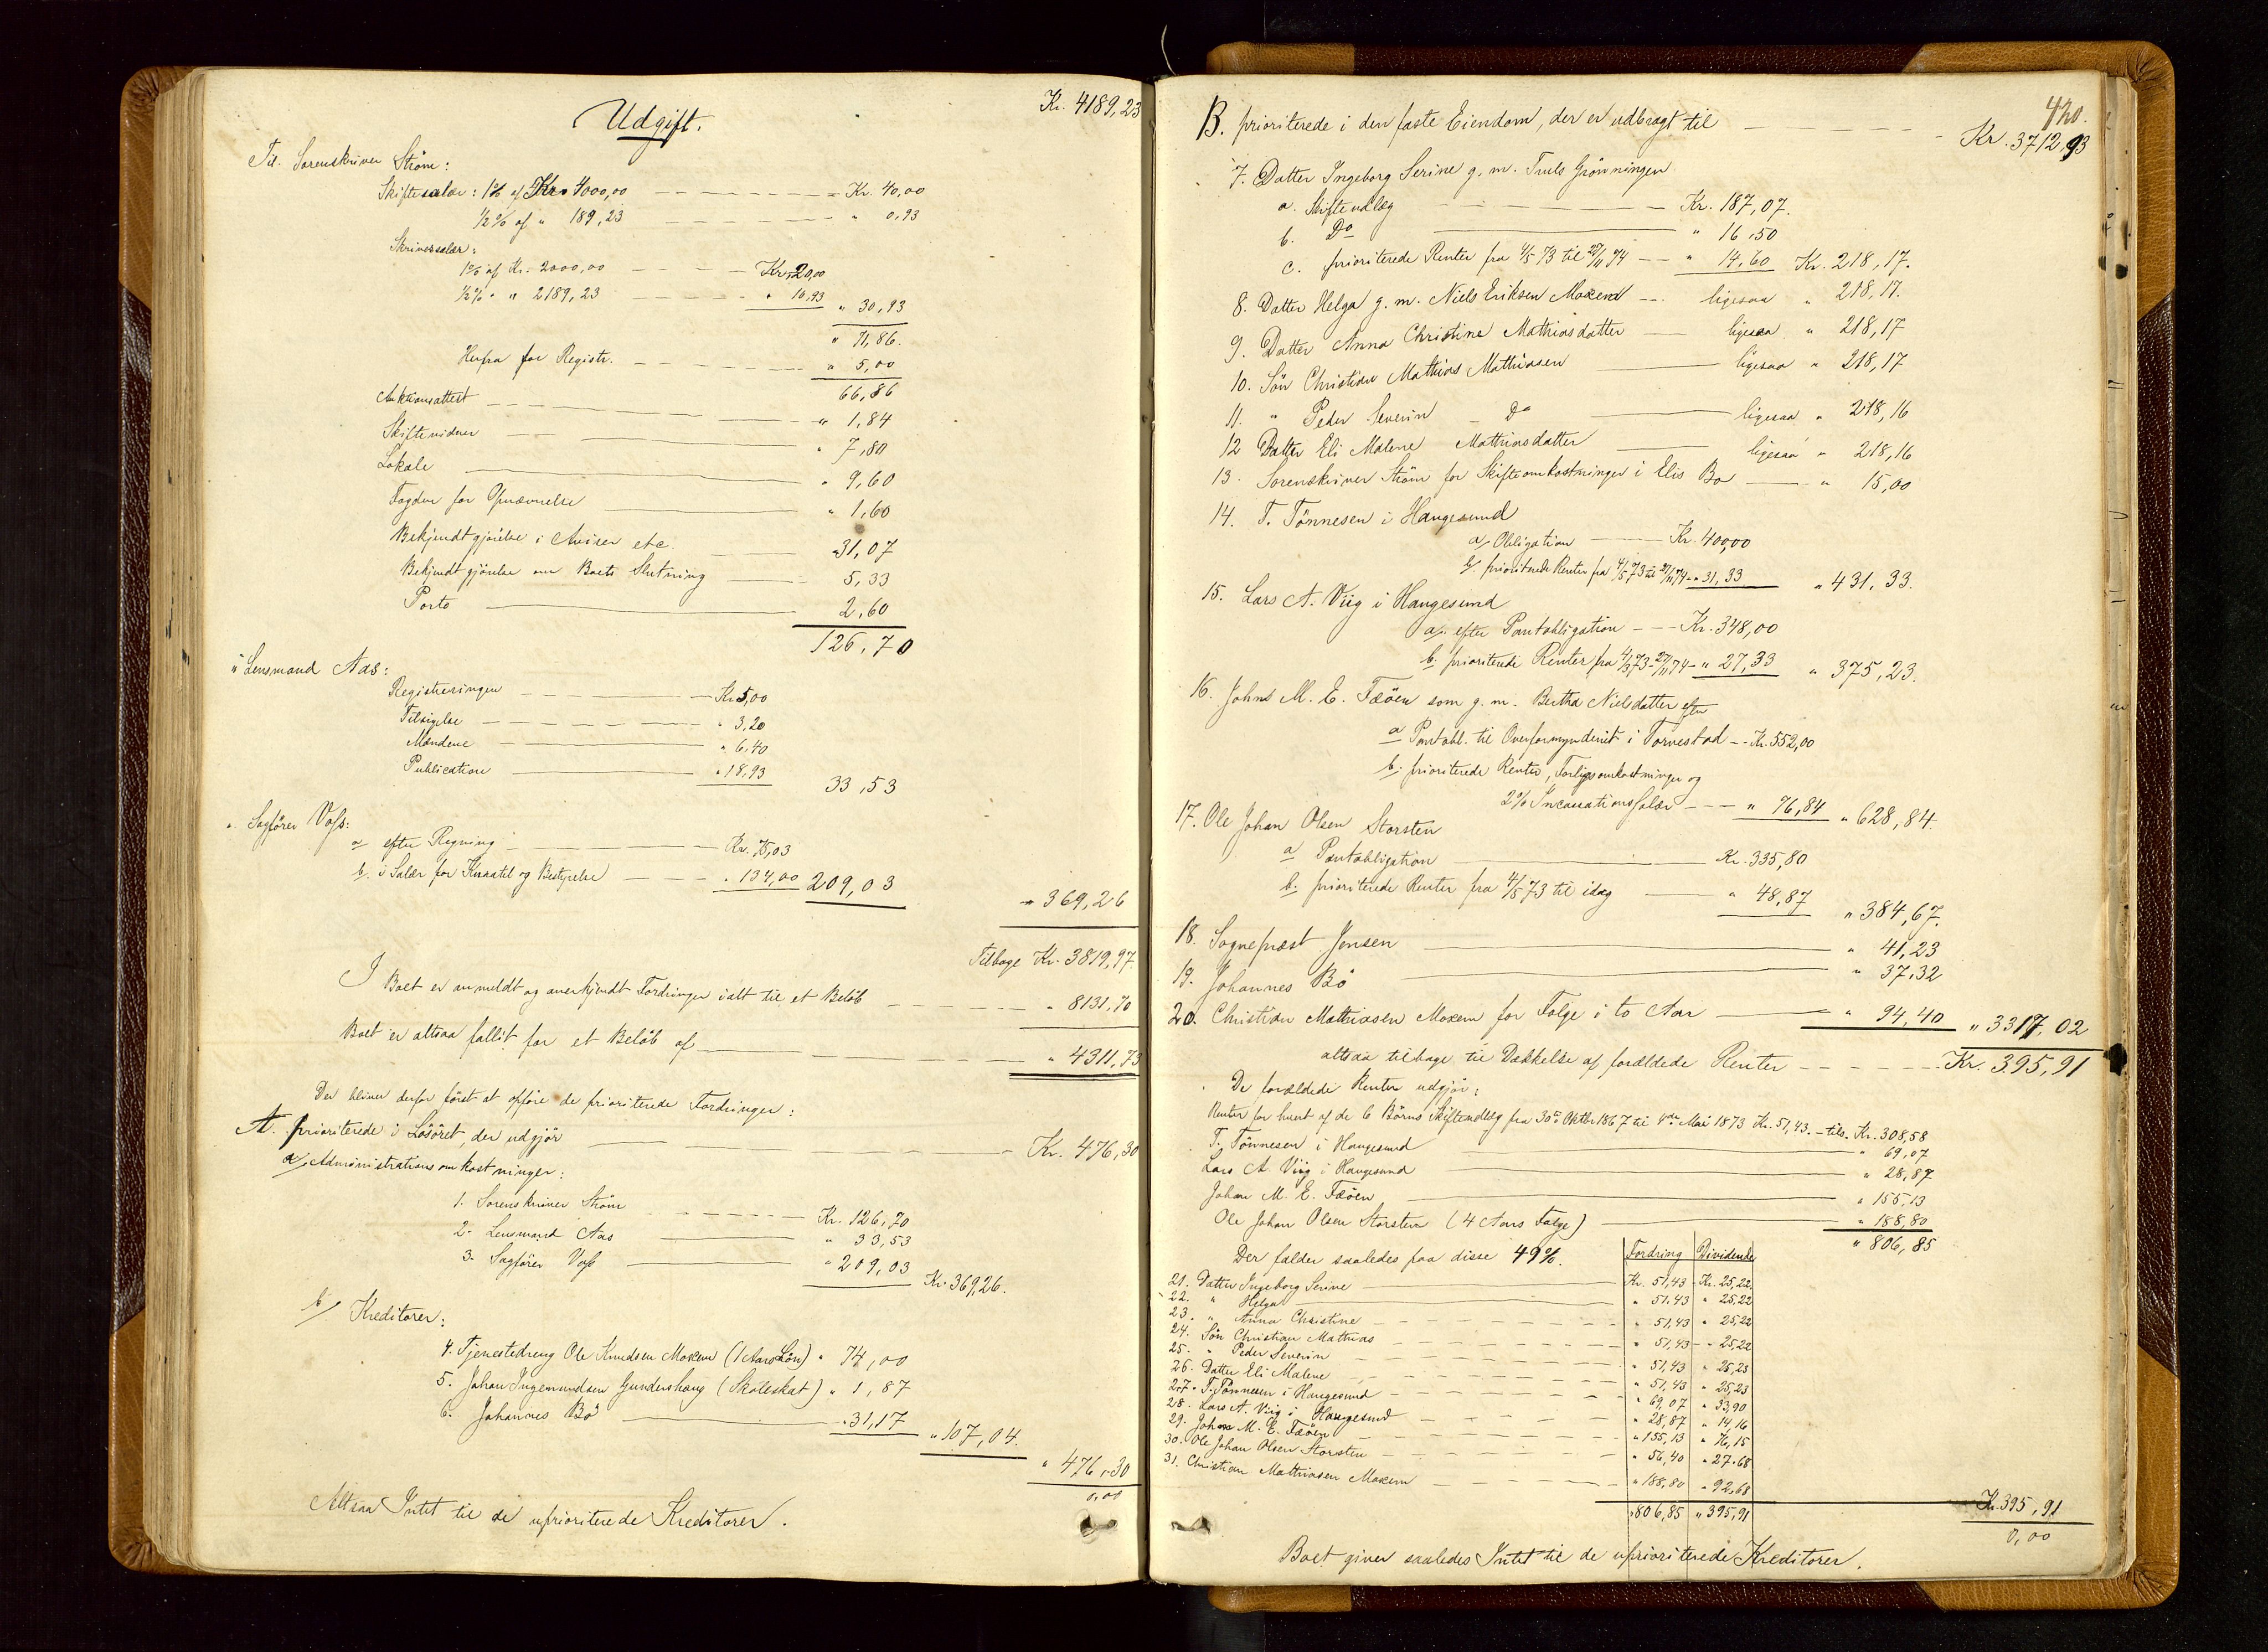 Kr. 4189,23
Udgift.
Til Sorenskriver Ström:
Skiftesalær: 1% af Kr. 4000,00 Kr. 40,00
1/2% af " 189,23 " 0,93
Skriversalær:
1% af Kr. 2000,00 Kr. 20,00
1/2% " " 2189,23 " 10,93 " 30,93
" 71,86.
Herfra for Registr. " 5,00
66,86
Auktionsattest " 1,84
Skiftevidner " 7,80
Lokale " 9,60
Fogden for Opnævnelse " 1,60
Bekjendtgjörelse i Aviser etc. " 31,07
Bekjendtgjörelse om Boets Slutning 5,33
Porto 2,60
126,70
" Lensmand Aas:
Registreringen Kr. 5,00
Tilsigelse " 3,20
Mændene " 6,40
Publication " 18,93 33,53
" Sagförer Voss:
a efter Regning Kr. 75,03
b. i Salær for Kuratel og Bestyrelse " 134,00 209,03
" 369,26
Tilbage Kr. 3819,97.
I Boet er anmeldt og anerkjendt Fordringer ialt til et Belöb " 8131,70
Boet er altsaa fallit for et Belöb af " 4311,73
Der bliver derfor först at opföre de prioriterede Fordringer:
A. prioriterede i Lösöret, der udgjör Kr. 476,30
a/ Administrationsomkostninger:
1. Sorenskriver Ström Kr. 126,70
2. Lensmand Aas " 33,53
3. Sagförer Voss " 209,03 Kr. 369,26.
b/ Kreditorer:
4. Tjenestedreng Ole Knudsen Moxem (1 Aars Lön) " 74,00
5. Johan Ingemundsen Gundershaug (Skoleskat) " 1,87
6. Johannes Bö " 31,17 " 107,04.
" 476,30
0,00
Altsaa Intet til de uprioriterede Kreditorer.
420.
B. prioriterede i den faste Eiendom, der er udbragt til Kr. 3712,93
7. Datter Ingeborg Serine g. m. Truls Grönningen
a. Skifteudlæg Kr. 187,07.
b. Do " 16,50
c. prioriterede Renter fra 4/5 73 til 27/11 74 " 14,60 Kr. 218,17.
8. Datter Helga g. m. Niels Eriksen Moxem ligesaa " 218,17.
9. Datter Anna Christine Mathiasdatter ligesaa " 218,17
10. Sön Christian Mathias Mathiasen ligesaa " 218,17
11. " Peder Severin Do ligesaa " 218,16
12 Datter Eli Malene Mathiasdatter ligesaa " 218,16
13. Sorenskriver Ström for Skifteomkostninger i Elis Bo " 15,00
14. T. Tönnesen i Haugesund
a/ Obligation Kr. 400,00
b. prioriterede Renter fra 4/5 73 til 27/11 74 " 31,33 " 431,33.
15. Lars A. Viig i Haugesund
a/. efter Pantobligation Kr. 348,00
b. prioriterede Renter fra 4/3 73 - 27/11 74 " 27,33 " 375,23.
16. Johns M. E. Fæöen som g. m. Bertha Nielsdatter efter
a Pantobl. til Overformynderiet i Torvestad Kr. 552,00
b. prioriterede Renter, Forligsomkostninger og
2% Incassationssalær " 76,84 " 628,84.
17. Ole Johan Olsen Storsten
a Pantobligation Kr. 335,80
b. prioriterede Renter fra 4/5 73 til idag " 48,87 " 384,67.
18. Sognepræst Jensen " 41,23
19. Johannes Bö " 37,32
20. Christian Mathiasen Moxem for Følge i to Aar " 94,40 " 3317,02
altsaa tilbage til Dækkelse af forældede Renter Kr. 395,91
De forældede Renter udgjör:
Renter for hvert af de 6 Börns Skifteudlæg fra 30te Oktbr 1867 til 4de Mai 1873 Kr. 51,43. - tils. Kr. 308,58
T. Tönnesen i Haugesund " 69,07
Lars A. Viig i Haugesund " 28,87
Johan M. E. Fæöen " 155,13
Ole Johan Olsen Storsten (4 Aars Følge) " 188,80
" 806,85
Der falder saaledes paa disse 49%. Fordring Dividende
21. Datter Ingeborg Serine Kr. 51,43 Kr. 25,22
22. " Helga " 51,43 " 25,22
23. " Anna Christine " 51,43 " 25,22
24. Sön Christian Mathias " 51,43 " 25,22
25. " Peder Severin " 51,43 " 25,23
26. Datter Eli Malene " 51,43 " 25,23
27. T. Tönnesen i Haugesund " 69,07 " 33,90
28. Lars A. Viig i Haugesund " 28,87 " 14,16
29. Johan M. E. Fæöen " 155,13 " 76,15
30. Ole Johan Olsen Storsten " 56,40 " 27,68
31. Christian Mathiasen Moxem " 188,80 " 92,68
" 806,85 " 395,91 Kr. 395,91
0,00
Boet giver saaledes Intet til de uprioriterede Kreditorer.